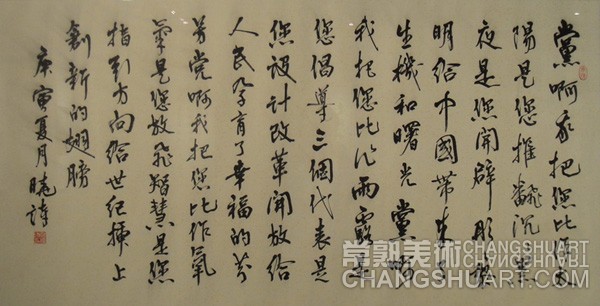 黨啊我把您比作太
陽是您推翻沉黑
夜是您開辟彤
明給中國帶來了
生機和曙光黨啊
我把您比作雨露是
您倡導三個代表是
您設計改革開放給
人民孕育了幸福的芬
芳党啊我把您比作氧
氣是您放飛智慧是您
指引方向給世紀插上
創新的翅膀
庚寅夏月曉詩
常熟美術 CHANGSHUART
CHANGSHUART.COM